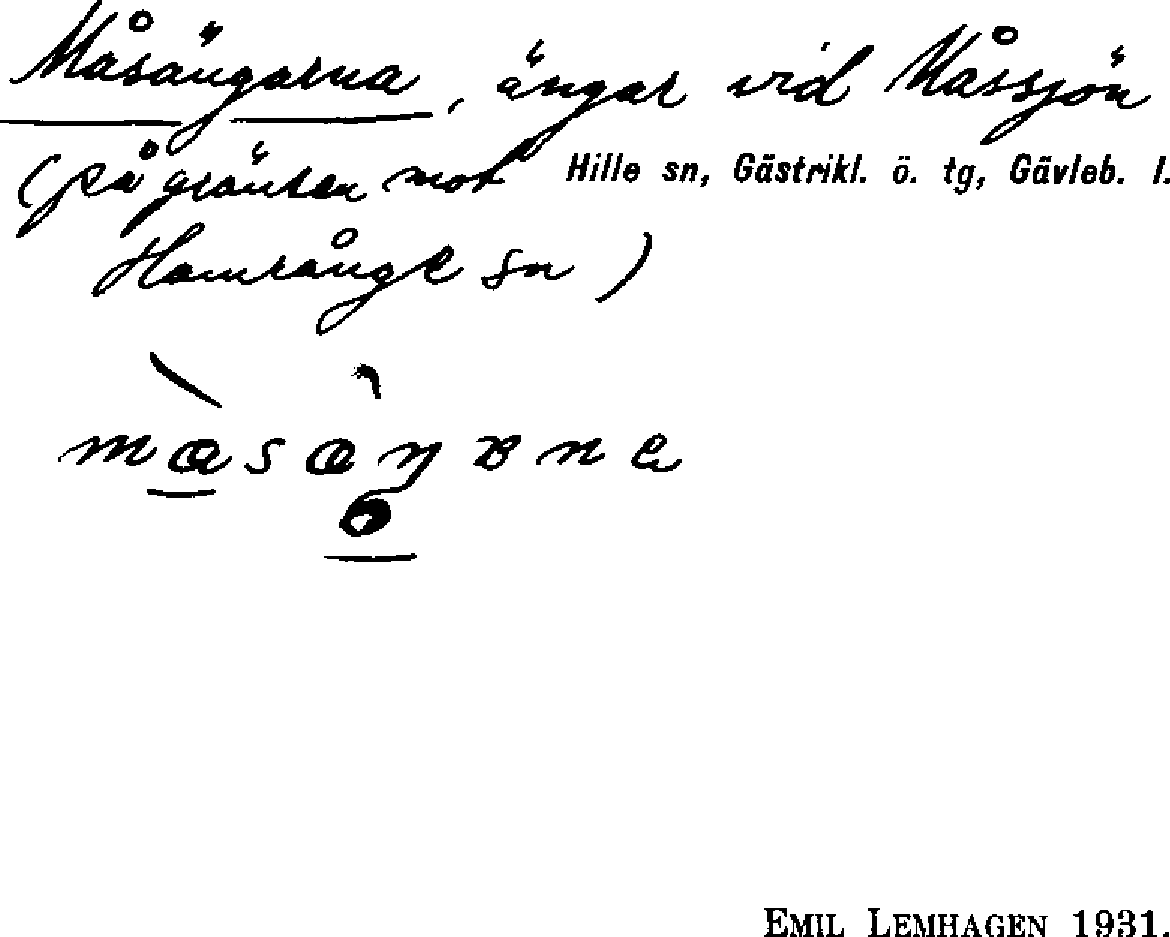 Måsängarna, ängar vid Måssjön
(på gränsen mot Hille sn, Gästrikl. ö. tg, Gävleb. l.
Hamrånge sn)
EMIL LEMHAGEN 1931.